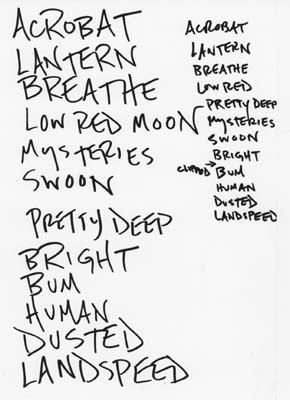 ACROBAT
LANTERN
BREATHE
LOW RED MOON
MYSTERIES
SWOON
PRETTY DEEP
BRIGHT
BUM
HUMAN
DUSTED
LANDSPEED
ACROBAT
LANTERN
BREATHE
LOW RED
PRETTY DEEP
MYSTERIES
SWOON
BRIGHT
BUM
HUMAN
DUSTED
LANDSPEED